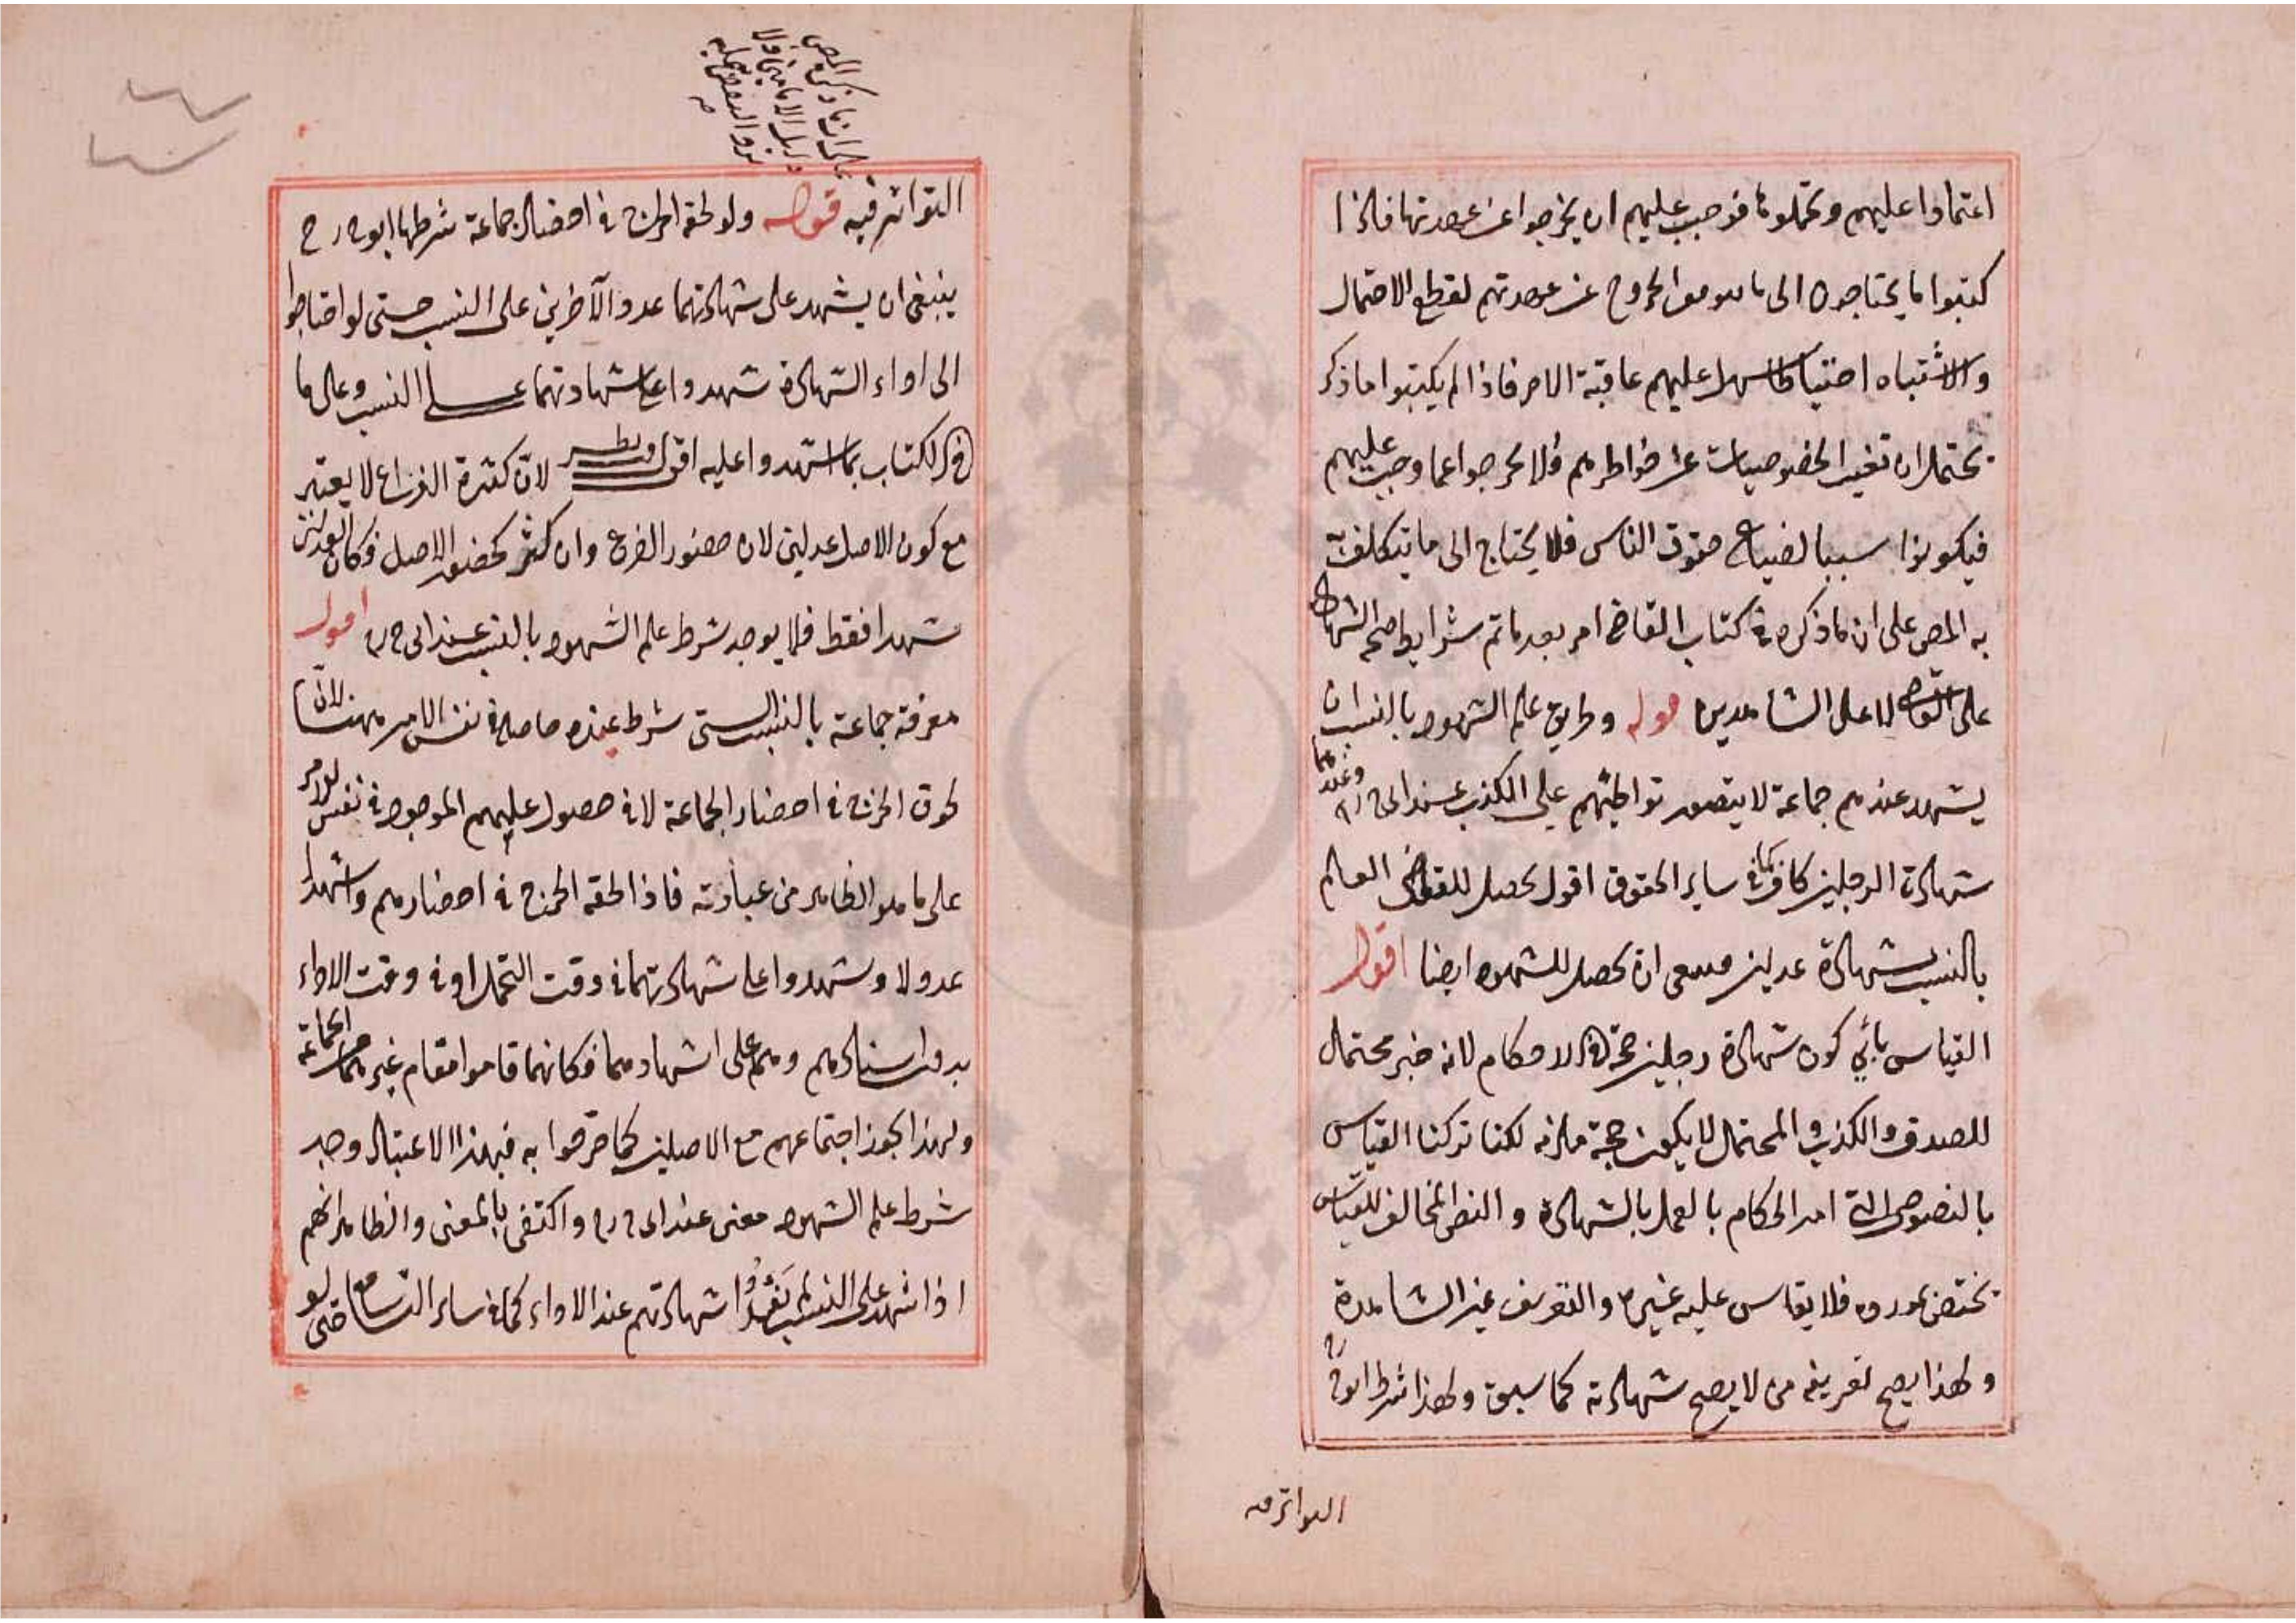 اعتمادا عليهم وتحملوها فوجب عليهم ان يخرجوا عن عهدتها فلذا
كتبوا ما يحتاجون الى ما هو مع الخروج عن عهدتهم لقطع الاحتمال
والاشتباه احتياطا عليهم عاقبة الامر فاذا لم يكتبوا ما ذكر
يحتمل ان تغيب الخصوصيات عن خواطرهم فلا يخرجوا عما وجب عليهم
فيكونوا سببا لضياع حقوق الناس فلا يحتاج الى ما يتكلف
به المص على ان ما ذكره في كتاب القاضي امر بعد ما تم شرايط صحة الشهادة
على القاضي لا على الشاهدين قوله وطريق علم الشهود بالنسب ان
يشهد عندهم جماعة لا يتصور تواطئهم على الكذب عند ابي ح رح وعندهما
شهادة الرجلين كاف كما في ساير الحقوق اقول يحصل للقاضي العلم
بالنسب بشهادة عدلين فينبغي ان يحصل للشهود ايضا اقول
القياس يأبي كون شهادة رجلين حجة في الاحكام لانه خبر محتمل
للصدق والكذب والمحتمل لا يكون حجة ملزمه لكنا تركنا القياس
بالنصوص التي امر الحكام بالعمل بالشهادة والنص المخالف للقياس
يختص بمورده فلا يقاس عليه غيره والتعريف غير الشاهدة
ولهذا يصح تعريف من لا يصح شهادته كما سبق ولهذا شرط ابو ح رح
التواتر فيه
التواتر فيه قوله ولو لحقه الحرج في احضار جماعة شرطها ابو ح رح
ينبغي ان يشهد على شهادتهما عدد الآخرين على النسب حتى لو احتاجوا
الى اداء الشهادة شهدوا على شهادتهما على النسب وعلى ما
في الكتاب بما استشهدوا عليه اقول وفيه نظر لان كثرة الفرع لا يعتبر
مع كون الاصل عدلين لان حضور الفرع وان كثر كحضور الاصل فكان العدلين
شهدا فقط فلا يوجد شرط علم الشهود بالنسب عند ابي ح رح اقول
معرفة جماعة بالنسب التي شرط عنده حاصلة في نفس الامر ههنا لان
لحوق الحرج في احضار الجماعة لا في حصول عليهم الموجود في نفس الامر
على ما هو الظاهر من عبارته فاذا لحقه الحرج في احضارهم واشهدا
عدولا وشهدوا على شهادتهما في وقت التحمل او في وقت الاداء
بدون اسنادهم وهم على اشهادهما فكانهما قاموا مقام غيرهما من الجماعة
ولهذا يجوز اجتماعهم مع الاصلين كما صرحوا به فبهذا الاعتبار وجد
شرط علم الشهود معنى عند ابي ح رح واكتفى بالمعنى والظاهر انهم
اذا شهد على النسب شهادتهم عند الاداء كما في ساير التسامع حتى لو